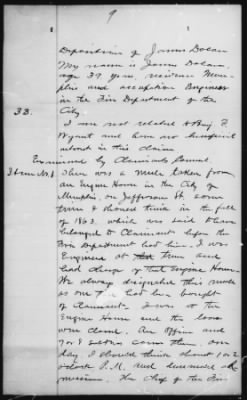 9
Deposition of James Dolan
My name is James Dolan,
age 37 years, residence Mem-
phis and occupation Engineer
in the Fire Department of the
City
33. I am not related to Benj. F.
Wyant and have no interest
in this claim
Examined by Claimants Counsel.
Item No. 1 There was a mule taken from
an Engine House in the City of
Memphis, on Jefferson St. corner
from & thence time in the fall
of 1863. which was said to have
belonged to Claimant before the
Fire Department had him. I was
Engineer at the time and
had charge of that Engine House.
We always designated this mule
as one we had been bought
of Claimant. I was at the
Engine House and the doors
were closed. An officer and
7 or 8 soldiers came there, one
day, I should think about 1 or 2
o'clock P.M. and demanded
admission. The Chief of the Fire